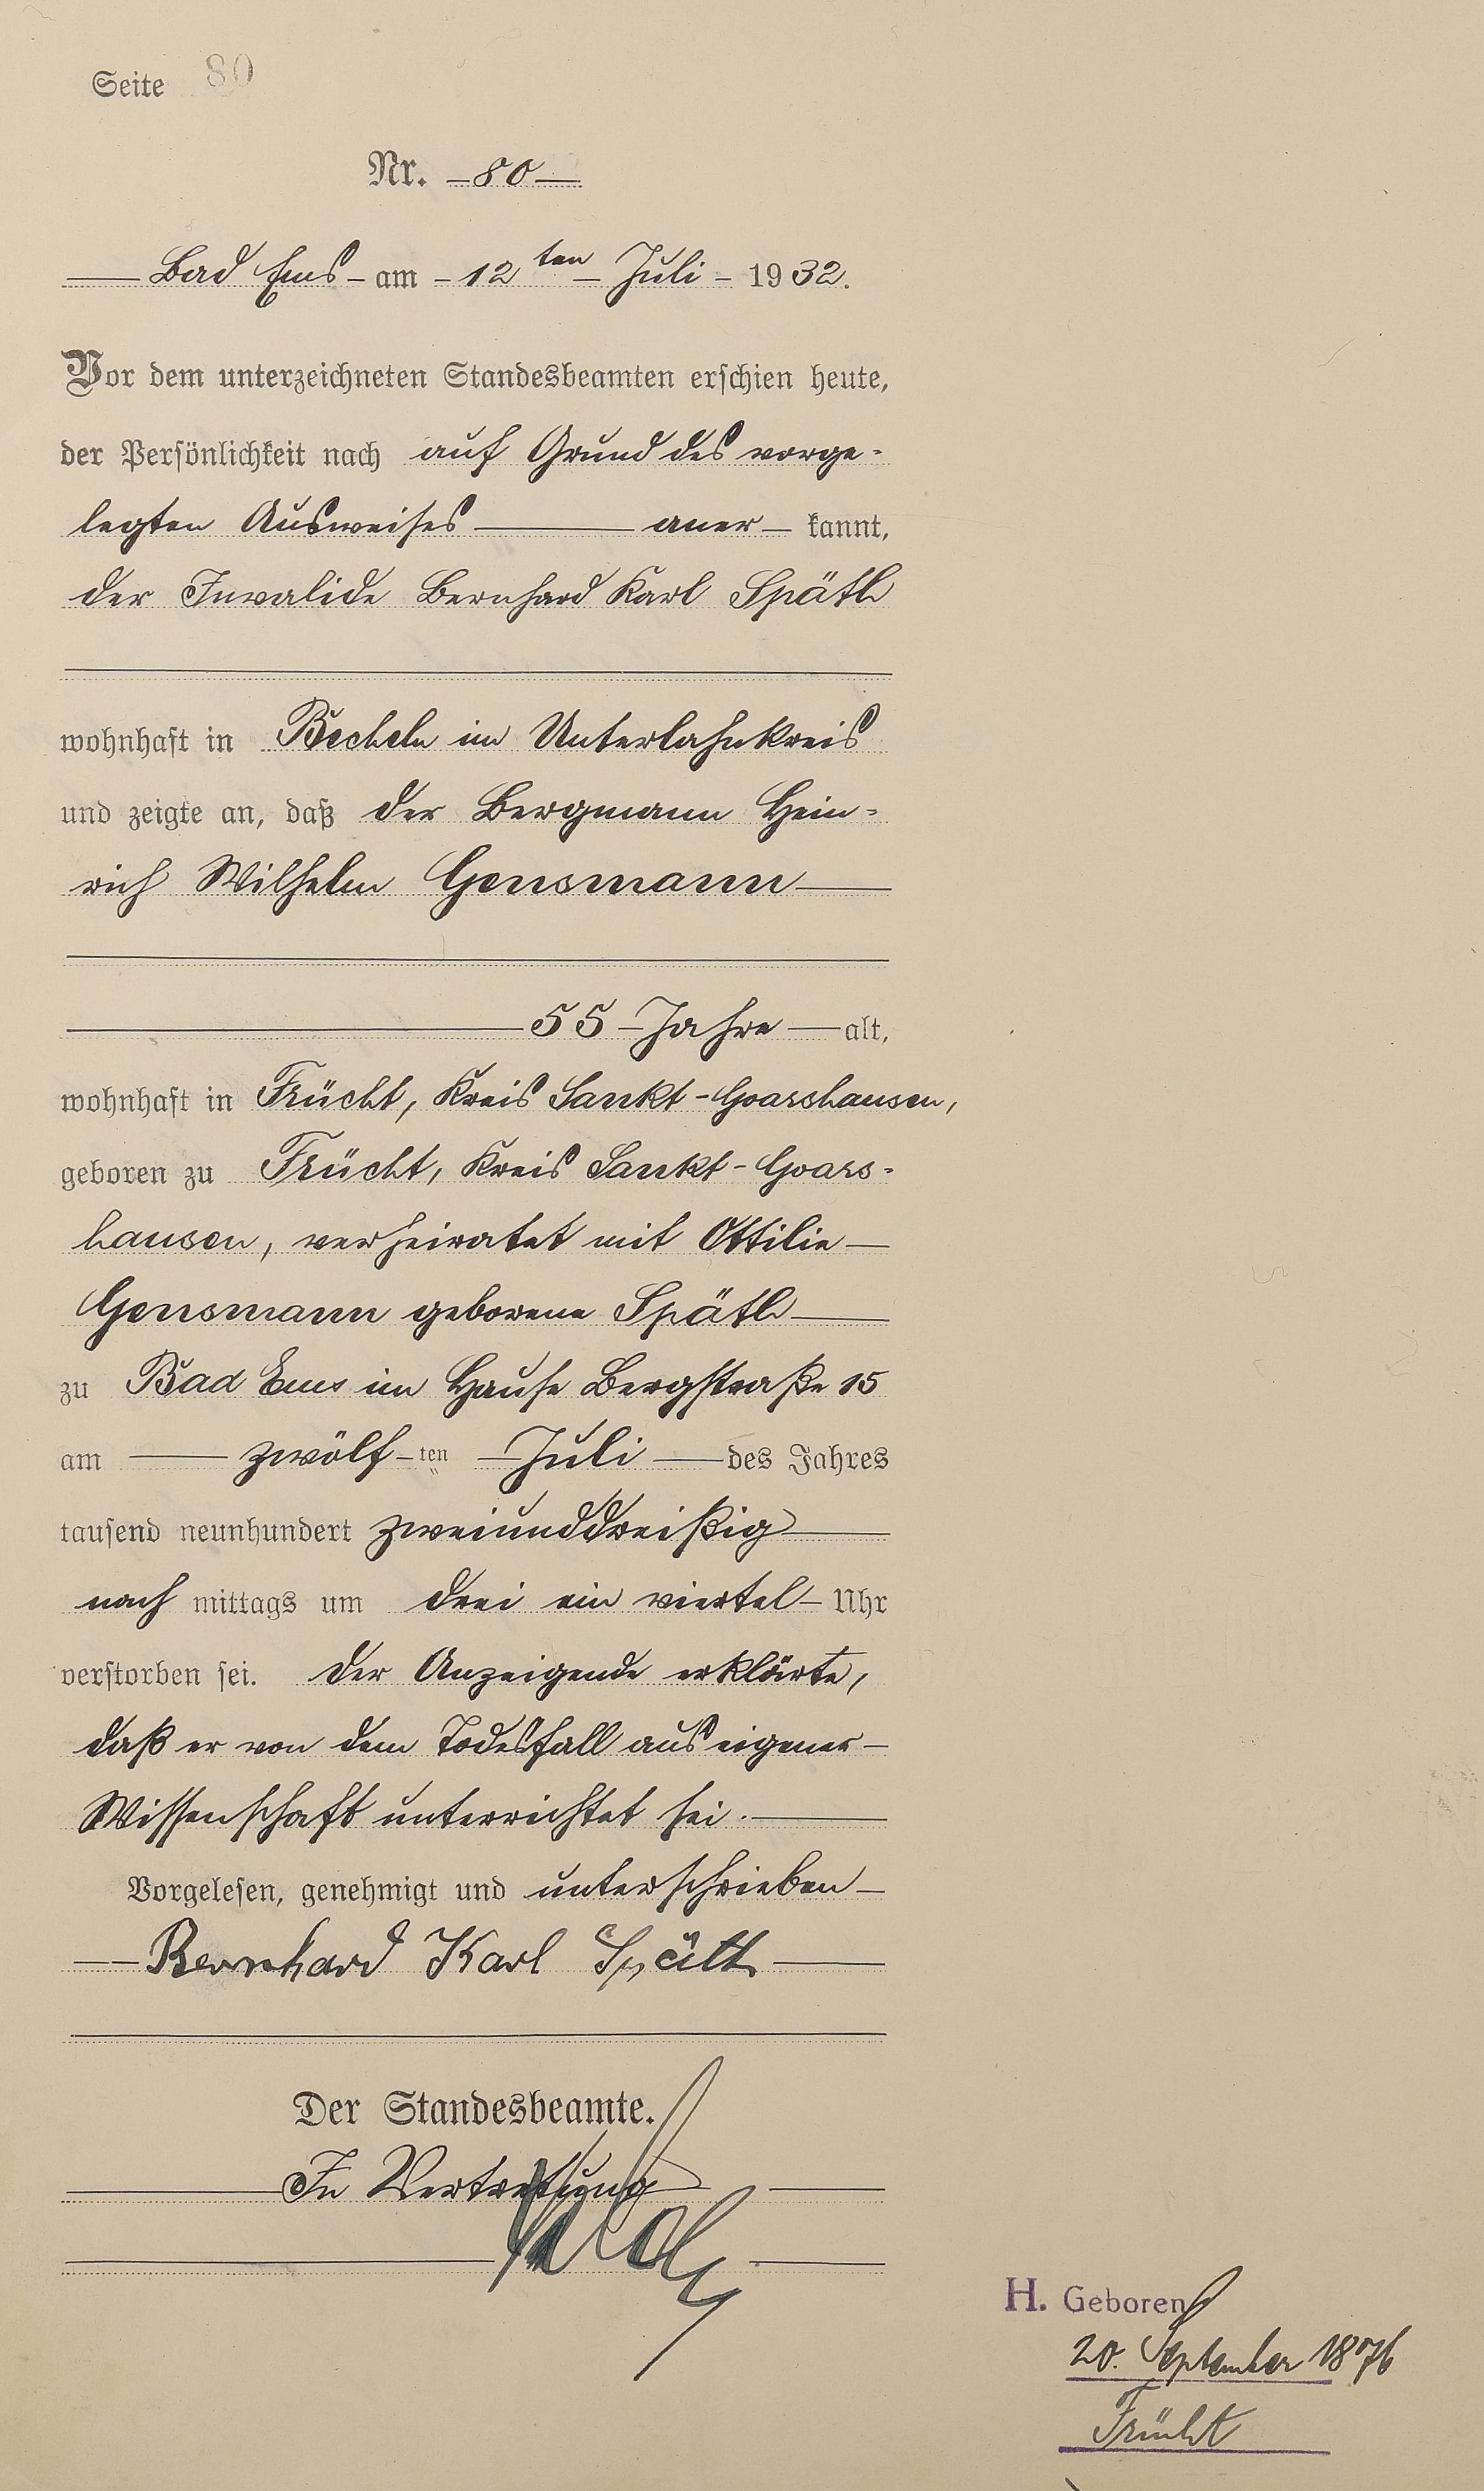 Seite 80
Nr. 80
Bad Ems am 12ten Juli 1932.
Vor dem unterzeichneten Standesbeamten erschien heute,
der Persönlichkeit nach auf Grund des vorge-
legten Ausweises aner kannt,
der Invalide Bernhard Karl Späth
wohnhaft in Becheln im Unterlahnkreis
und zeigte an, daß der Bergmann Hein-
rich Wilhelm Gensmann
55 Jahre alt,
wohnhaft in Frücht, Kreis Sankt-Goarshausen,
geboren zu Frücht, Kreis Sankt-Goars-
hausen, verheiratet mit Ottilie
Gensmann geborene Späth
zu Bad Ems im Hause Bergstraße 15
am zwölf ten Juli des Jahres
tausend neunhundert zweiunddreißig
nach mittags um drei ein viertel Uhr
verstorben sei. Der Anzeigende erklärte,
daß er von dem Todesfall aus eigener
Wissenschaft unterrichtet sei.
Vorgelesen, genehmigt und unterschrieben
Bernhard Karl Späth
Der Standesbeamte.
In Vertretung
H. Geboren
20. September 1876
Frücht